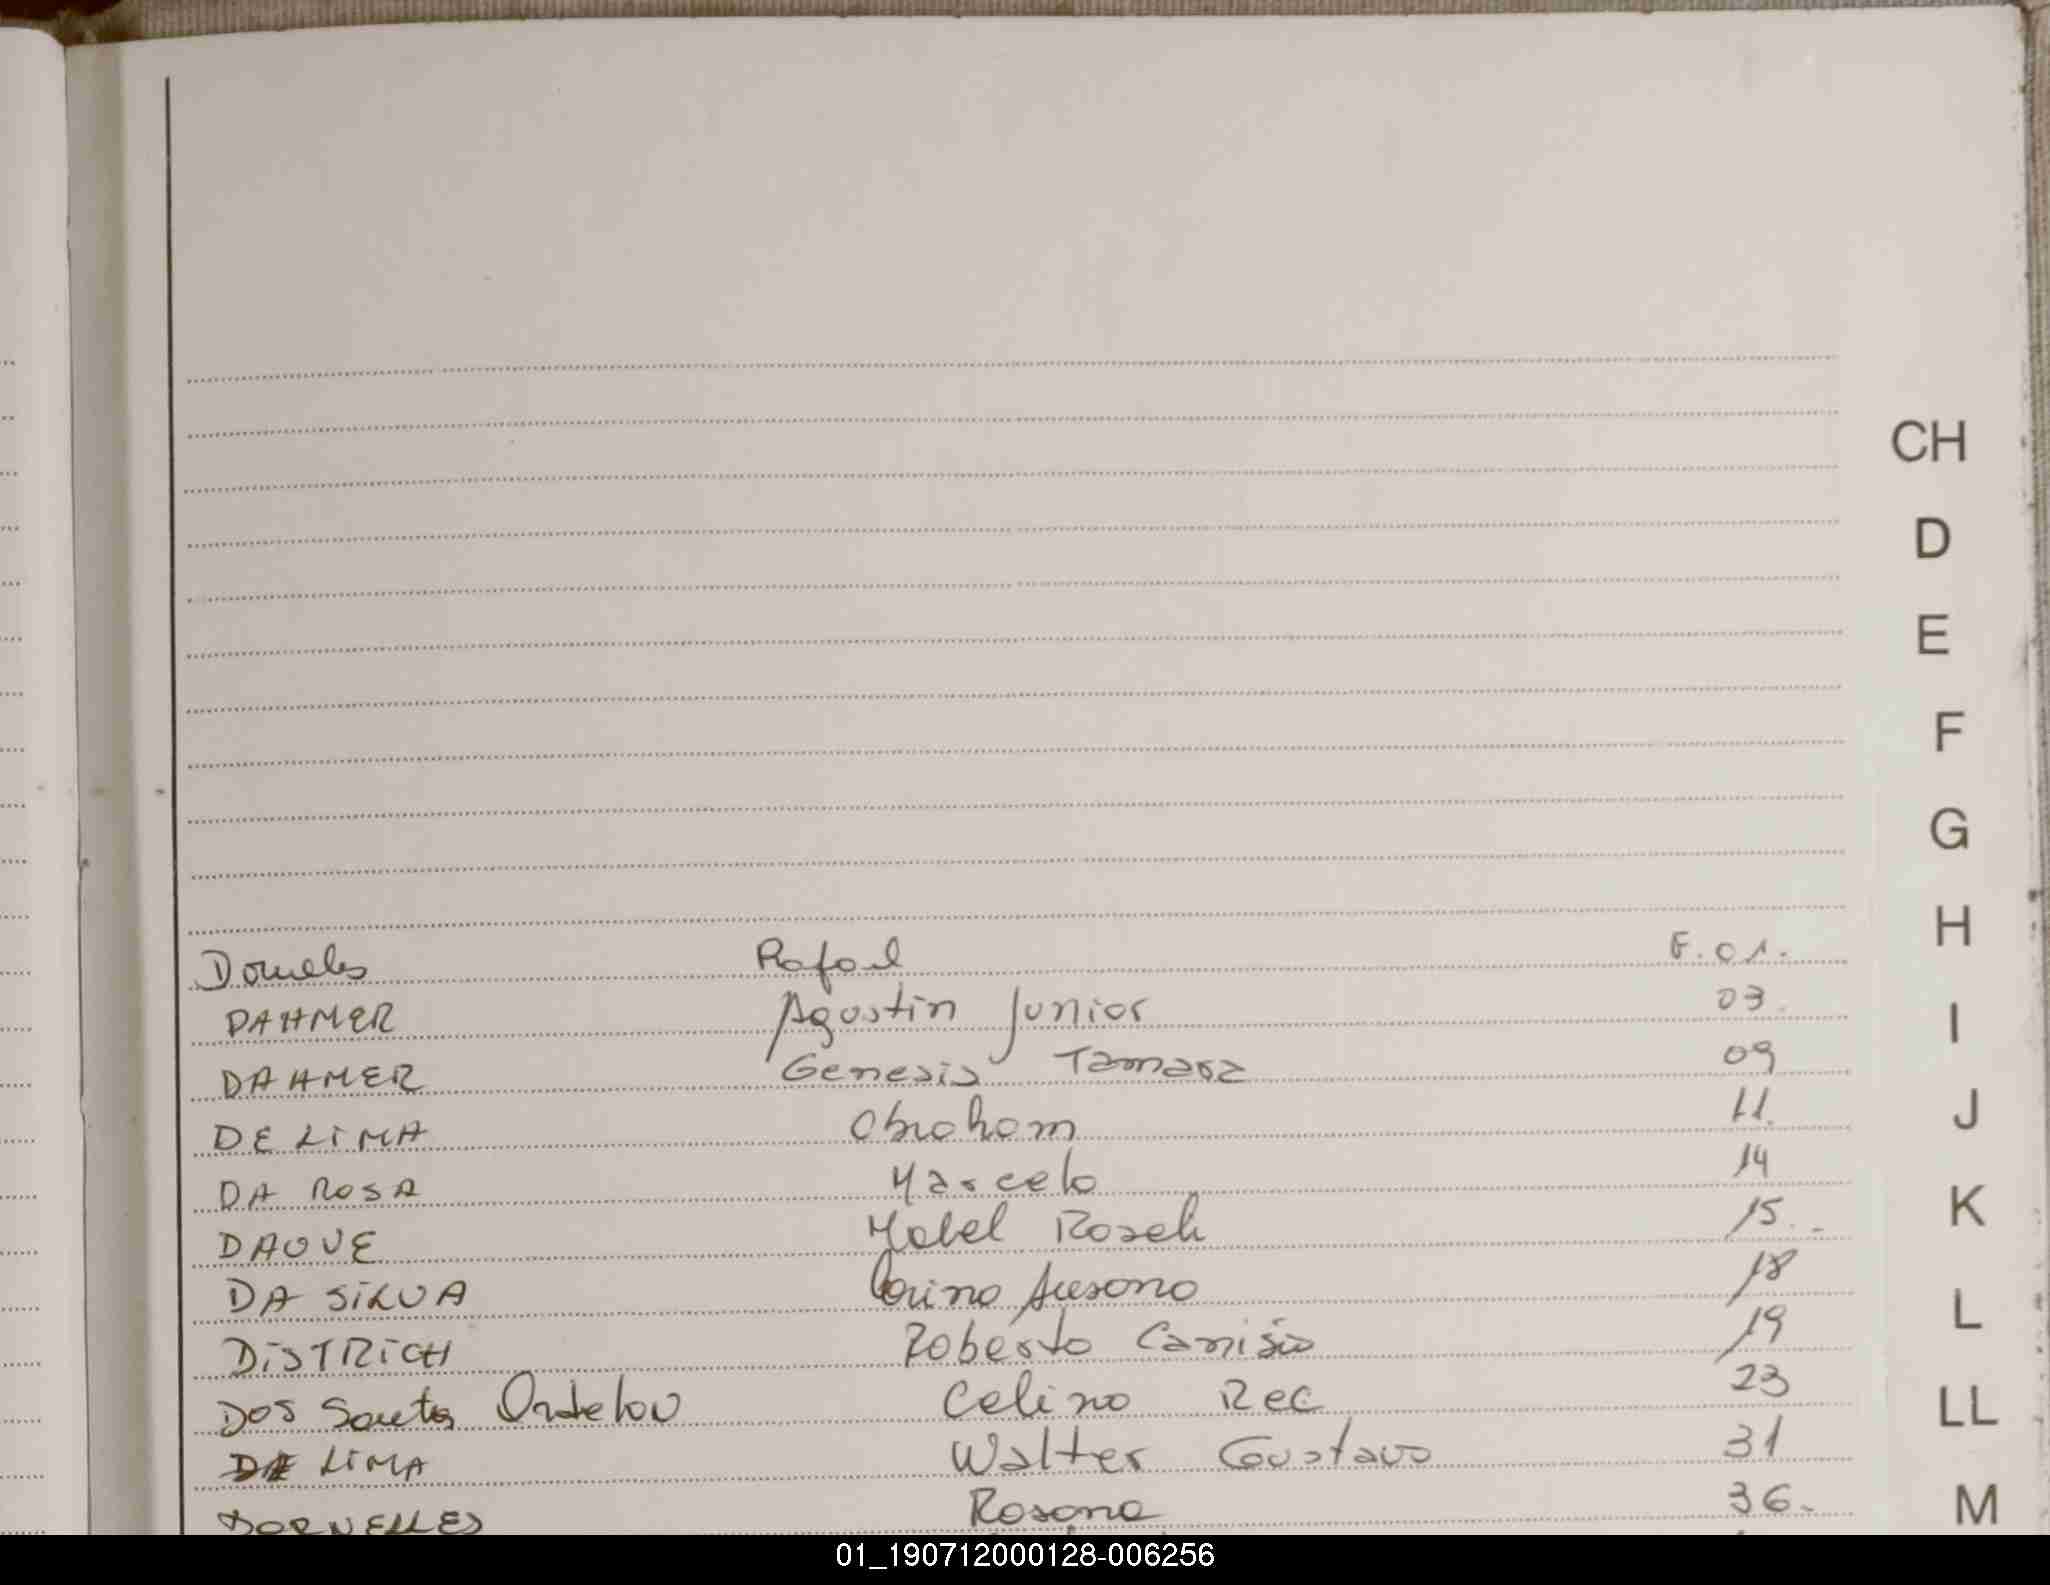 CH
D
E
F
G
H
I
J
K
L
LL
M
Dorneles Rafael F. 01.
DAHMER Agustin Junior 03.
DAHMER Genesis Tamara 09
DE LIMA Abraham 11.
DA ROSA Marcelo 14
DAOVE Mabel Roseli 15.
DA SILVA 18
DISTRICH Roberto 19
DOS Santos Celino 23
DE LIMA Walter Gustavo 31
DORNELLES Rosana 36.
01_190712000128-006256